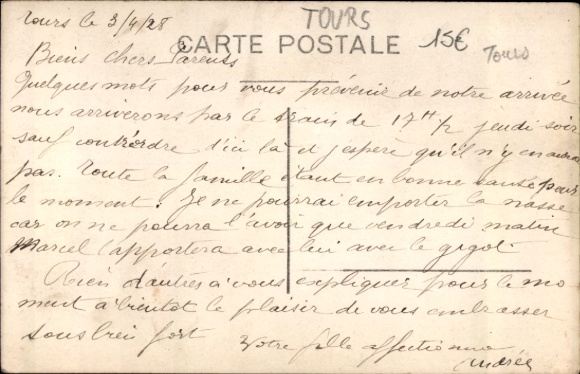 TOURS
Tours le 3/4/28
CARTE POSTALE
15€
Tours
Biens chers Parents
Quelques mots pour vous prévenir de notre arrivée
nous arriverons par le train de 17H½ jeudi soir
sauf contrordre d'ici là et j'espère qu'il n'y en aura
pas. Toute la famille étant en bonne santé pour
le moment. Je ne pourrai emporter la nasse
car on ne pourra l'avoir que vendredi matin
Marcel l'apportera avec lui avec le gigot.
Rien d'autres à vous expliquer pour le mo
ment à bientot le plaisir de vous embrasser
tous bien fort
Votre fille affectionnée
Andrée